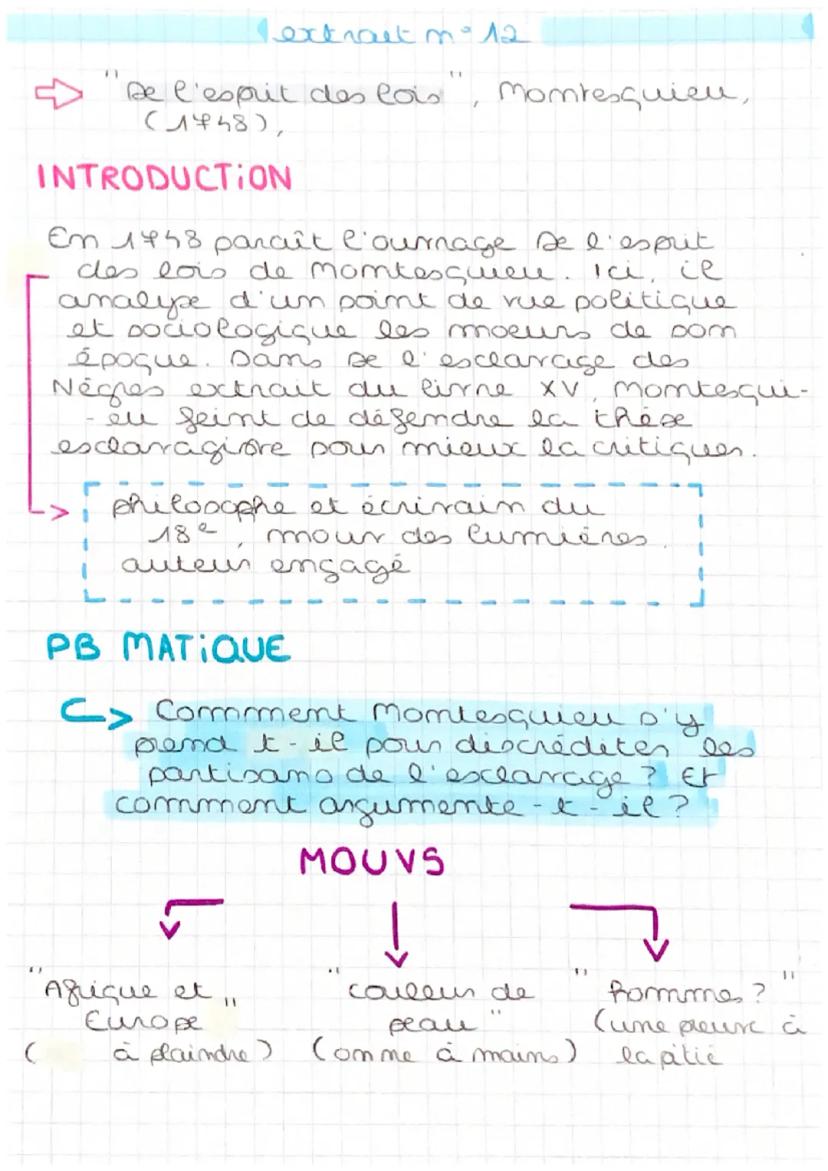 extrait n° 12
"De l'esprit des lois", Montesquieu,
(1748),
INTRODUCTION
En 1748 paraît l'ouvrage De l'esprit
des lois de Montesquieu. Ici, il
analyse d'un point de vue politique
et sociologique les moeurs de son
époque. Dans De l'esclavage des
Nègres extrait du livre XV, Montesqui-
-eu feint de défendre la thèse
esclavagiste pour mieux la critiquer.
philosophe et écrivain du
18e, mouv des lumières,
auteur engagé
PB MATIQUE
Comment Montesquieu s'y
prend t-il pour discréditer les
partisans de l'esclavage ? Et
comment argumente-t-il ?
MOUVS
"Afrique et
Europe"
( à plaindre)
"couleur de
peau"
(on ne à mains)
"hommes ?"
(une preuve à
la pitié